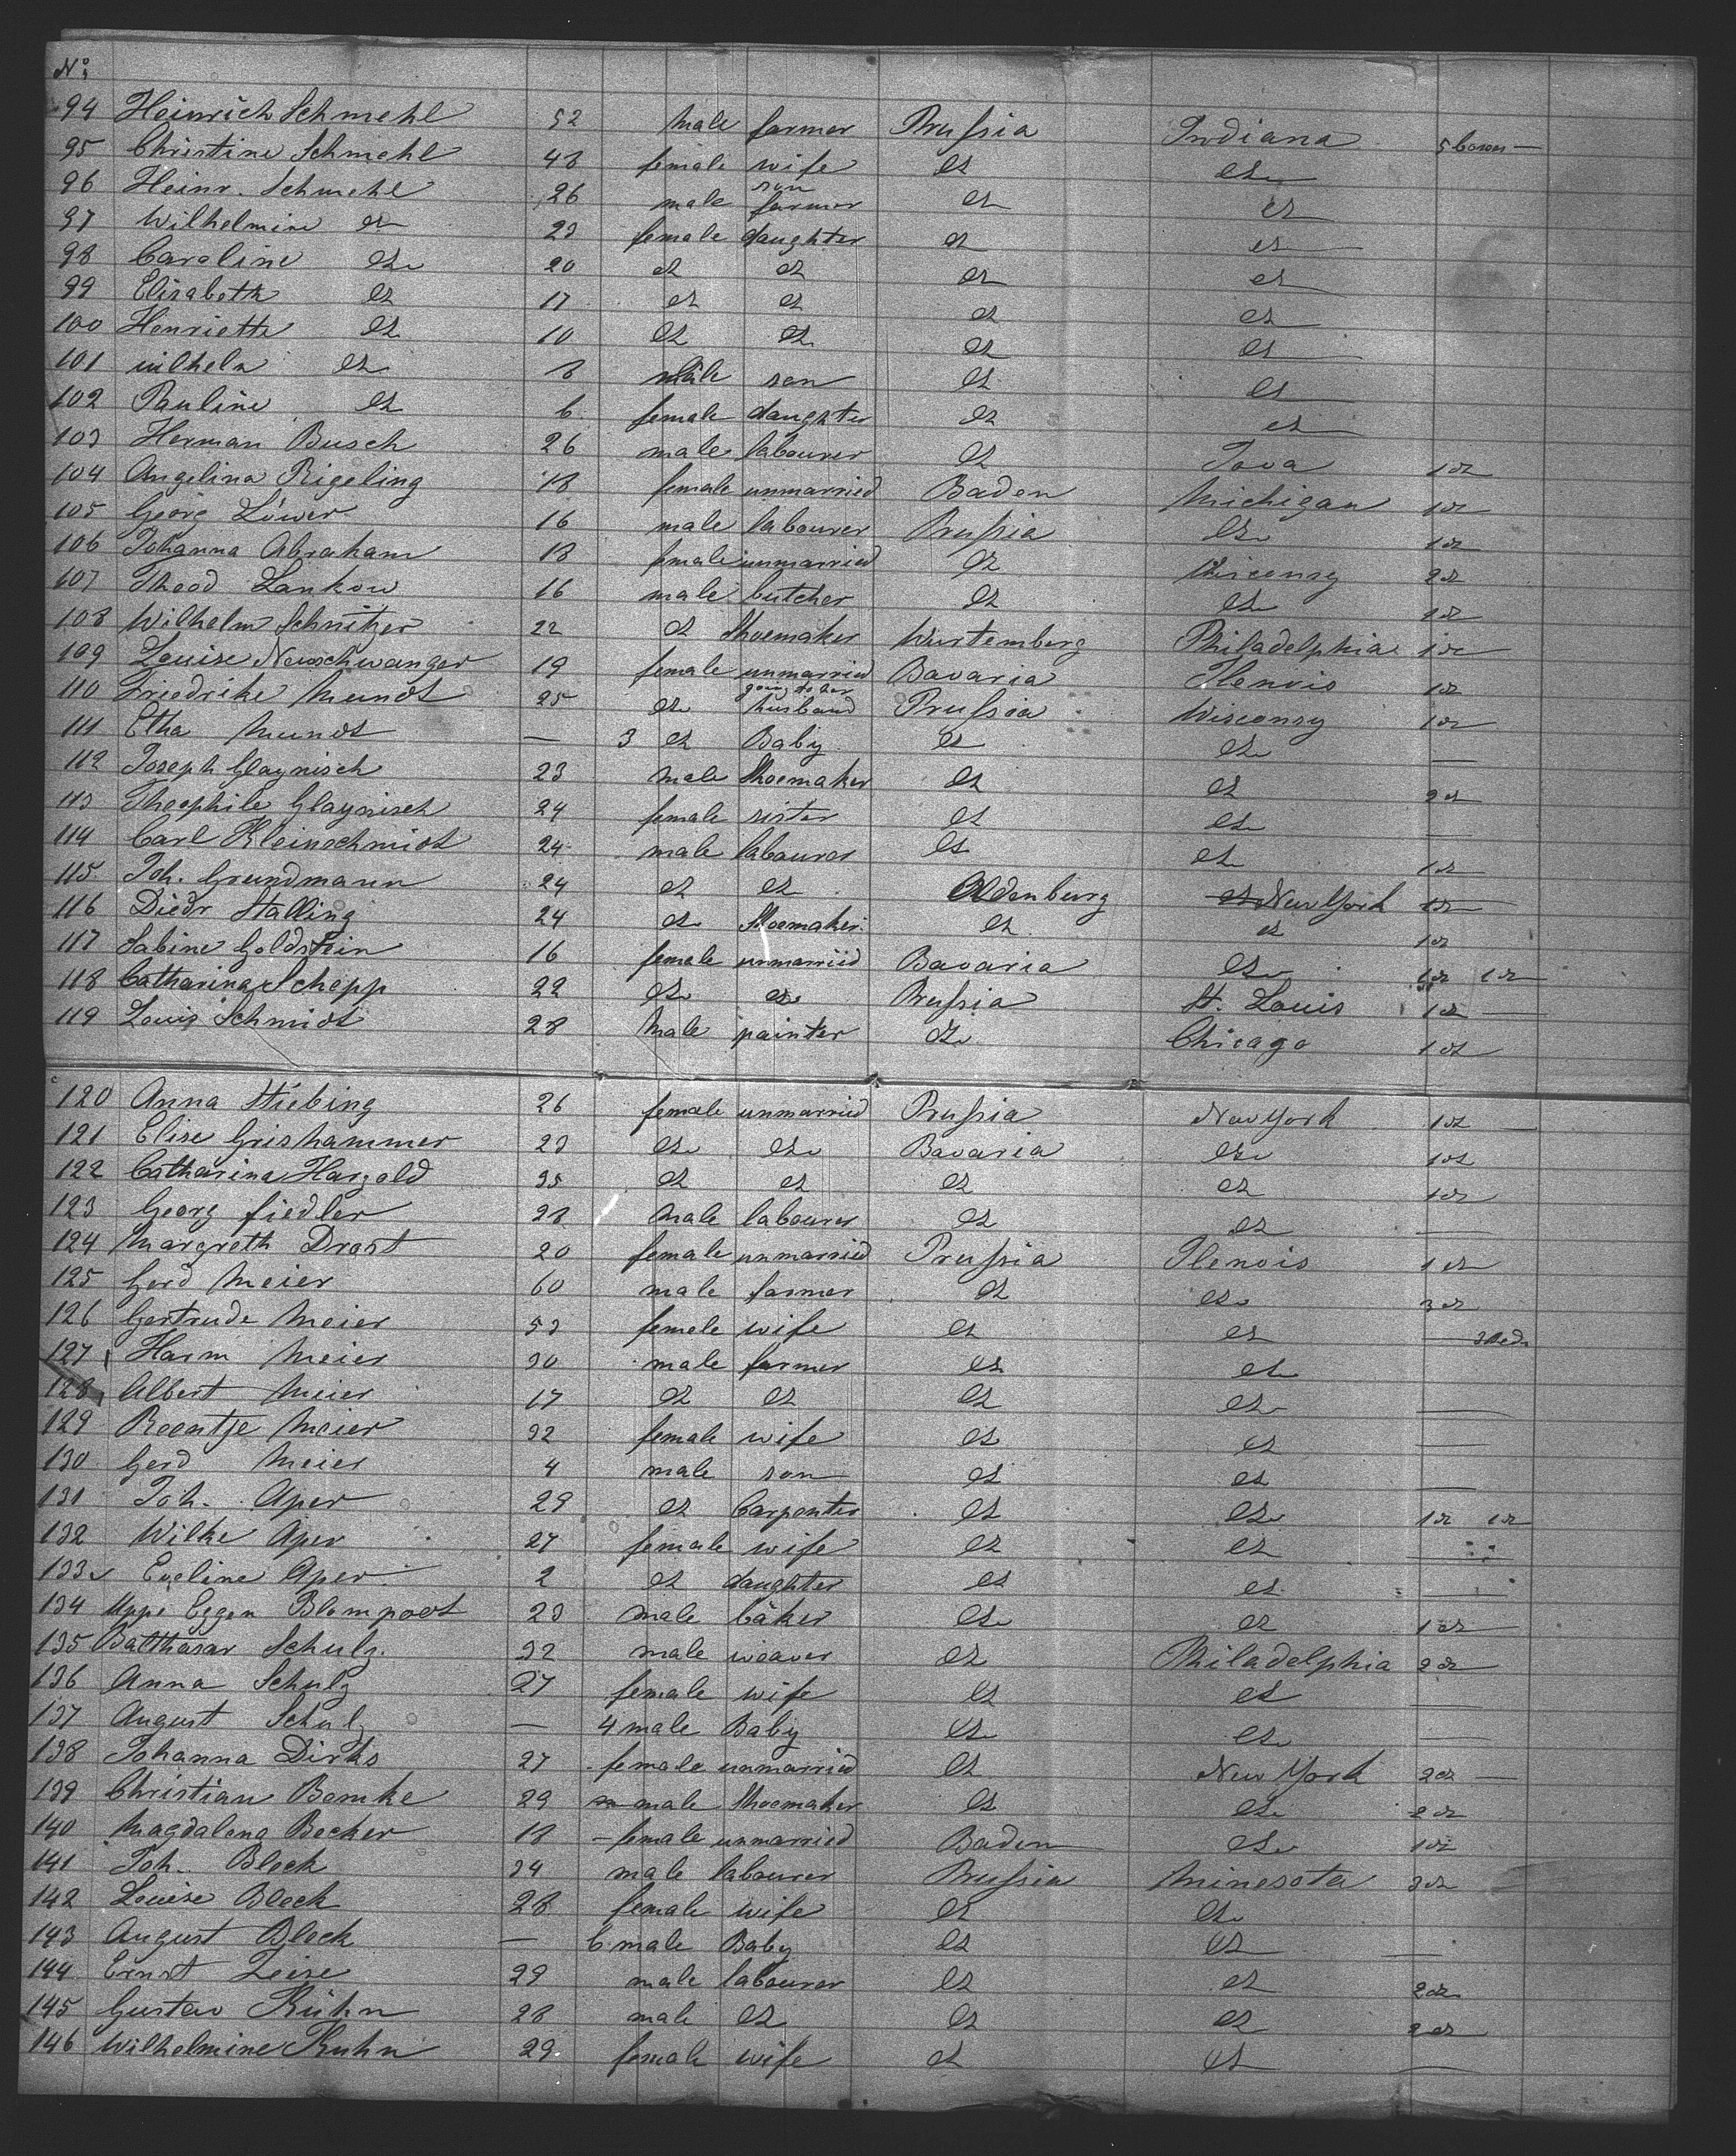 No
94 Heinrich Schmehl 52 male farmer Prussia Indiana 5 boxes —
95 Christine Schmehl 48 female wife do do
96 Heinr. Schmehl 26 male son farmer do do
97 Wilhelmine do 23 female daughter do do
98 Caroline do 20 do do do do
99 Elisabeth do 17 do do do do
100 Henriette do 10 do do do do
101 wilhelm do 8 male son do do
102 Pauline do 6 female daughter do do
103 Herman Busch 26 male labourer do Iova 1 do
104 Angelina Rigeling 18 female unmarried Baden Michigan 1 do
105 Georg Löwer 16 male labourer Prussia do 1 do
106 Johanna Abraham 18 female unmarried do Wisconsy 2 do
107 Theod Lankow 16 male butcher do do 2 do
108 Wilhelm Schnitzer 22 do Shoemaker Würtemberg Philadelphia 1 do
109 Louise Neuschwanger 19 female unmarried Bavaria Ilenois 1 do
110 Friedrike Mundt 25 do going to her husband Prussia Wisconsy 1 do
111 Etha Mundt — 3 do Baby do do —
112 Joseph Glaynisch 23 male Shoemaker do do 2 do
113 Theophile Glaynisch 24 female sister do do —
114 Carl Kleinschmidt 24 male labourer do do 1 do
115 Joh. Grundmann 24 do do Oldenburg do New York 1 do
116 Diedr Stalling 24 do Shoemaker do do 1 do
117 Sabine Goldstein 16 female unmarried Bavaria do 1 do 1 do
118 Catharina Schepp 22 do do Prussia St. Louis 1 do —
119 Louis Schmidt 28 male painter do Chicago 1 do
120 Anna Stiebing 26 female unmarried Prussia New York 1 do —
121 Elise Grishammer 23 do do Bavaria do 1 do
122 Catharina Hargold 35 do do do do 1 do
123 Georg Fiedler 28 male labourer do do —
124 Margreth Drost 20 female unmarried Prussia Ilenois 1 do
125 Gerd Meier 60 male farmer do do 3 do
126 Gertrude Meier 53 female wife do do — 3 beds
127 Harm Meier 30 male farmer do do
128 Albert Meier 17 do do do do —
129 Reentje Meier 32 female wife do do —
130 Gerd Meier 4 male son do do —
131 Joh. Aper 29 do Carpenter do do 1 do 1 do
132 Wilke Aper 27 female wife do do —
133 Eveline Aper 2 do daughter do do —
134 Uppe Eggen Blompoot 23 male bäker do do 1 do
135 Balthasar Schulz. 32 male weaver do Philadelphia 2 do
136 Anna Schulz 27 female wife do do —
137 August Schulz — 4 male Baby do do —
138 Johanna Dirks 27 female unmarried do New York 2 do —
139 Christian Bemke 29 male Shoemaker do do 2 do
140 Magdalena Becker 18 — female unmarried Baden do 1 do
141 Joh. Bleck 34 male labourer Prussia Minesota 3 do
142 Louise Bleck 28 female wife do do
143 August Bleck — 6 male Baby do do —
144 Ernst Zeise 29 male labourer do do 2 do
145 Gustav Kühn 28 male do do do 2 do
146 Wilhelmine Kuhn 29 female wife do do —